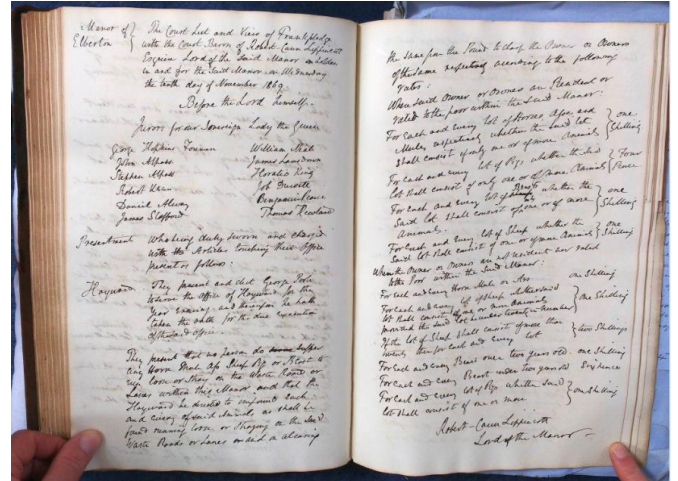 Manor of
Elberton
The Court Leet and View of Frankpledge
with the Court Baron of Robert Cann Lippincott
Esquire Lord of the said Manor
in and for the said Manor on Wednesday
the tenth day of November 1869
Before the Lord himself
Jurors for our Sovereign Lady the Queen
George Hopkins Foreman
William
John Alpass
James Lansdown
Stephen Alpass
Horatio King
Robert
Job
Daniel Alway
Benjamin
James
Thomas Rowland
Presentment
Who being duly sworn and charged
with the Articles touching their Office
present as follows:
Hayward
They present and elect George
to serve the office of Hayward for the
Year ensuing and he hath
taken the oath for the due execution
of the said office
They present that no person do suffer
any Horse Mule Ass Sheep Pig or Beast to
run loose or Stray on the Waste Roads or
Lanes within this Manor and that the
Hayward be directed to impound each
and every of said Animals as shall be
found running loose or Straying on the said
Waste Roads or Lanes and
the same from the Pound to charge the Owner or Owners
of the same respectively according to the following
rates:
When said Owner or Owners are Resident or
rated to the poor within the said Manor:
For each and every lot of Horses Asses and
Mules respectively whether the said lot
shall consist of only one or of more Animals
one
Shilling
For each and every lot of Pigs whether the said
lot shall consist of only one or of more Animals
Four
Pence
For each and every lot of Beasts whether the
said lot shall consist of one or of more
Animals
one
Shilling
For each and every lot of Sheep whether the
said lot shall consist of one or of more Animals
one
Shilling
When the Owner or Owners are not resident nor rated
to the Poor within the said Manor:
For each and every Horse Mule or Ass one Shilling
For each and every lot of Sheep whether said
lot shall consist of one or more Animals
provided the said lot be under twenty in number
one Shilling
If the lot of Sheep shall consist of more than
twenty then for each and every lot
two Shillings
For each and every Beast over two years old one Shilling
For each and every Beast under two years old Sixpence
For each and every lot of Pigs whether said
lot shall consist of one or more
one Shilling
Robert Cann Lippincott
Lord of the Manor